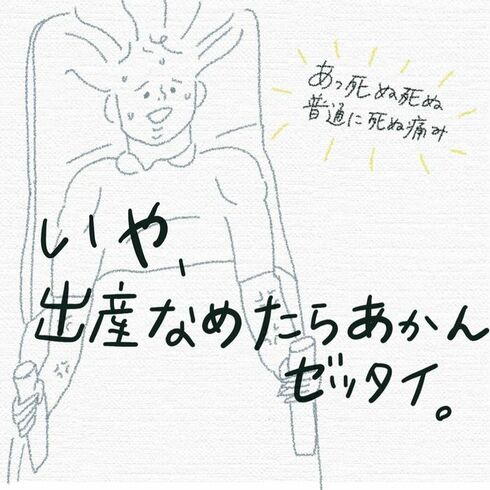 あっ死ぬ死ぬ
普通に死ぬ痛み
いや、
出産なめたらあかん
ゼッタイ。